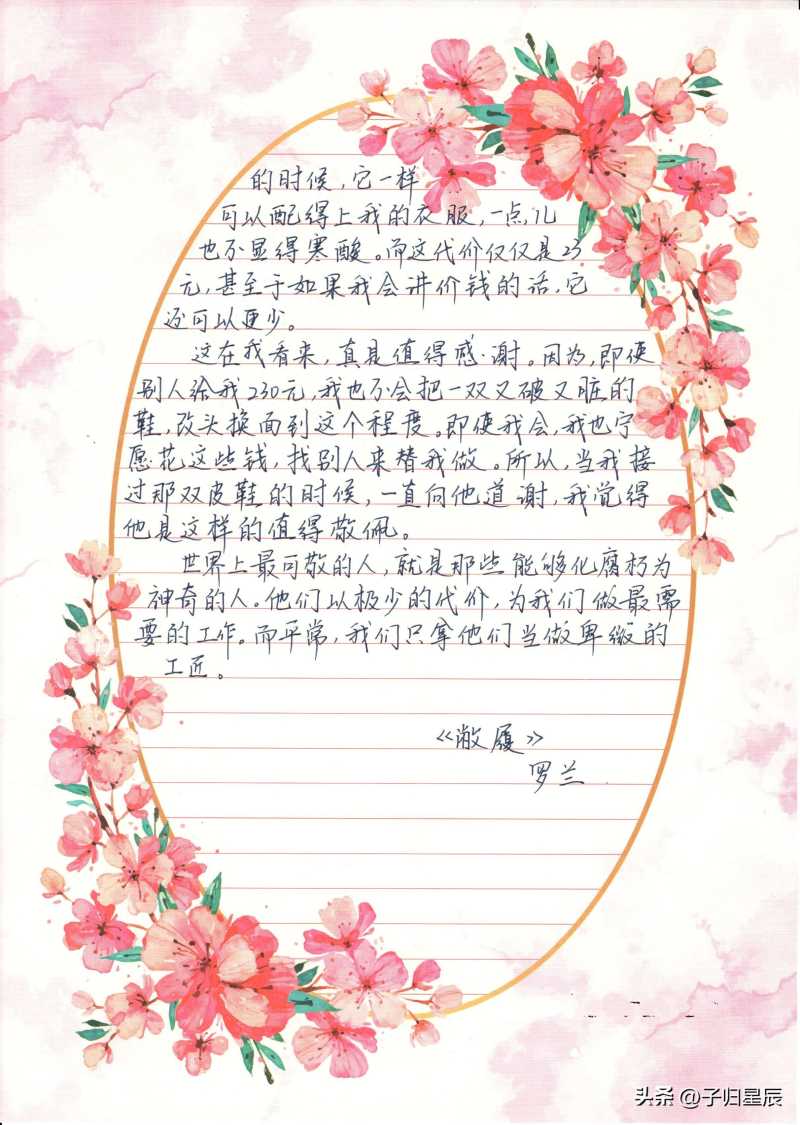 的时候，它一样
可以配得上我的衣服，一点儿
也不显得寒酸。而这代价仅仅是23
元，甚至于如果我会讲价钱的话，它
还可以更少。
这在我看来，真是值得感谢。因为，即使
别人给我230元，我也不会把一双又破又脏的
鞋，改头换面到这个程度。即使我会，我也宁
愿花这些钱，找别人来替我做。所以，当我接
过那双皮鞋的时候，一直向他道谢，我觉得
他是这样的值得敬佩。
世界上最可敬的人，就是那些能够化腐朽为
神奇的人。他们以极少的代价，为我们做最需
要的工作。而平常，我们只拿他们当做卑微的
工匠。
《敝履》
罗兰
头条 @子归星辰